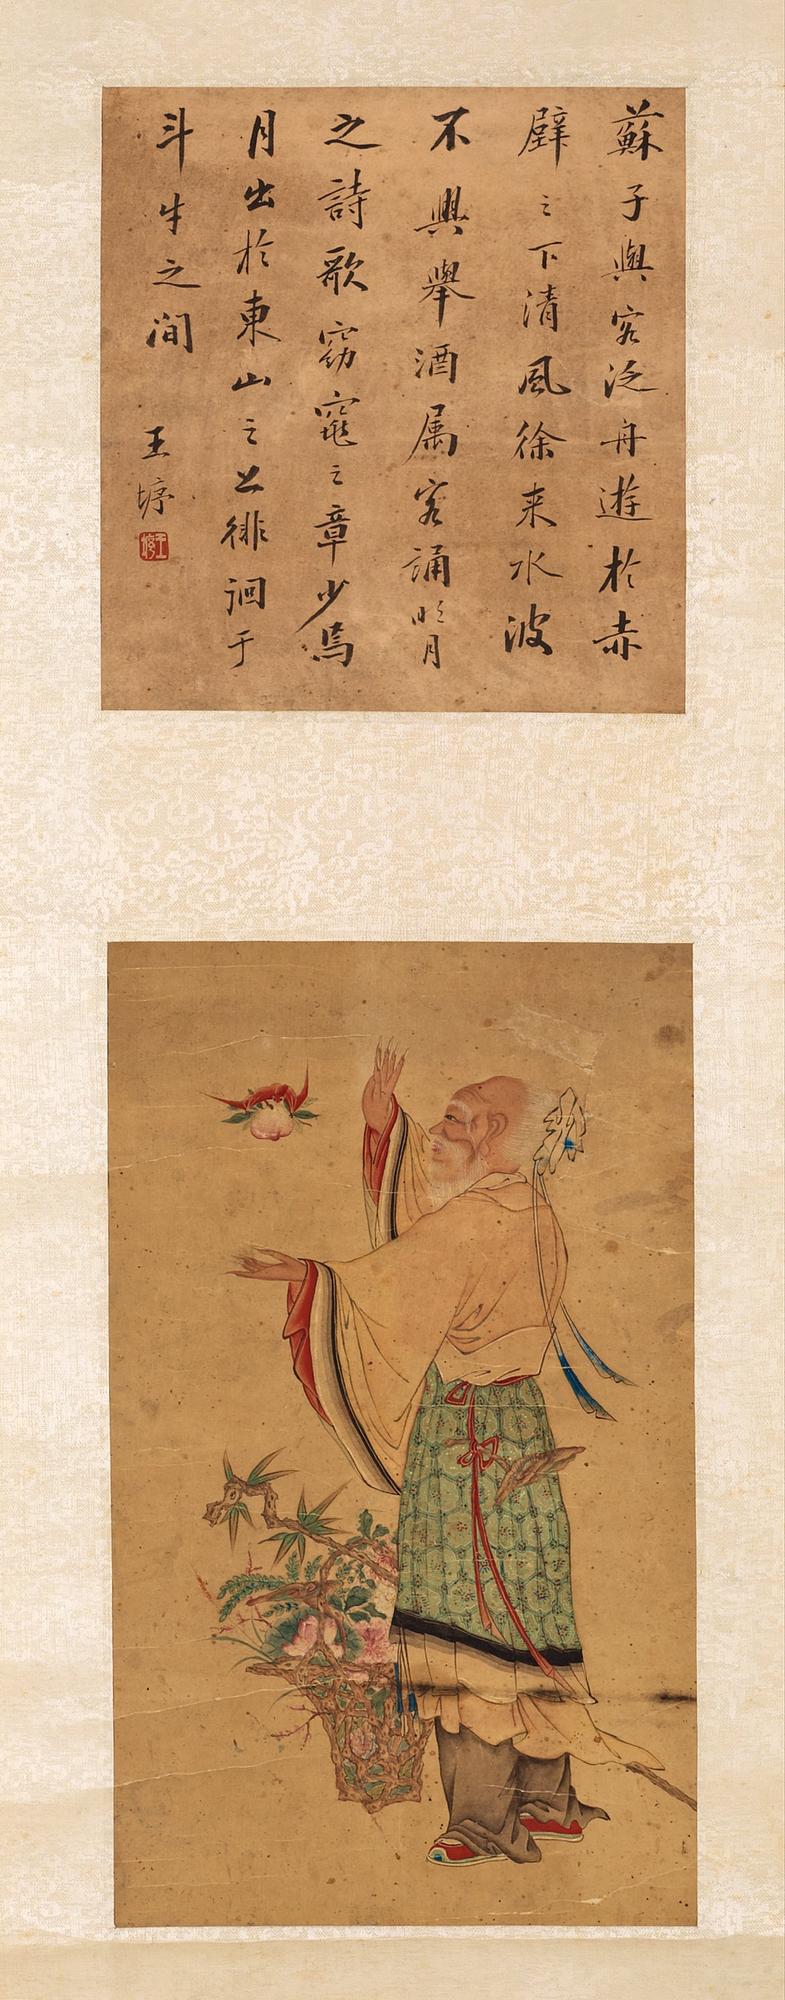 蘇子與客泛舟遊於赤
壁之下清風徐来水波
不興舉酒属客誦明月
之詩歌窈窕之章少焉
月出於東山之上徘徊于
斗牛之间
王㙈